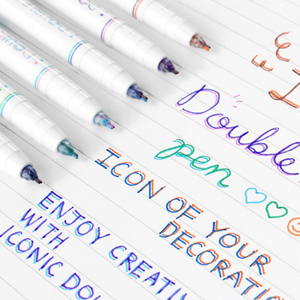 Double
pen
ICON OF YOUR
DECORATIO
ENJOY CREATIV
WITH
ICONIC DOU